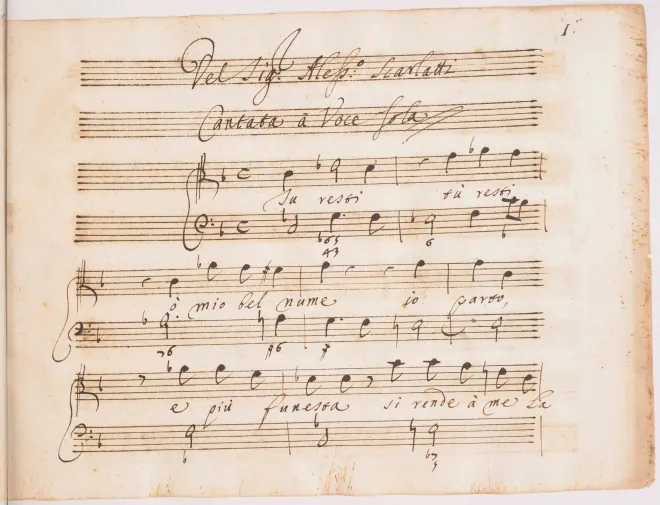 1.
Del Sig.r Aless.o Scarlatti
Cantata à Voce Sola
Tu resti tù resti
ò mio bel nume io parto,
e più funesta si rende à me La